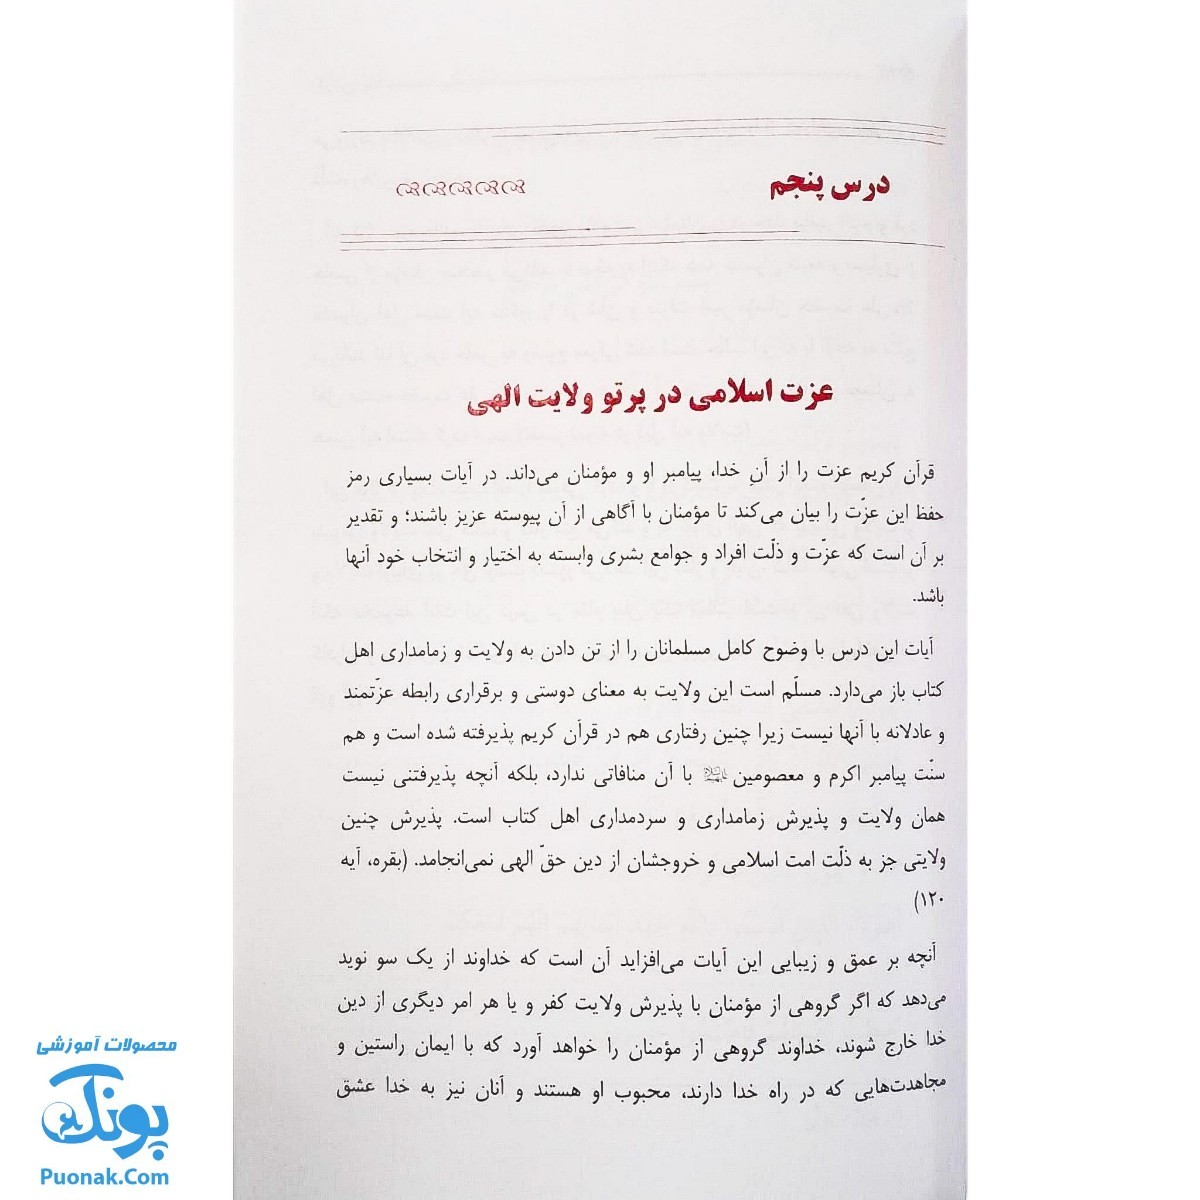 درس پنجم
عزت اسلامی در پرتو ولایت الهی
قرآن کریم عزت را از آنِ خدا، پیامبر او و مؤمنان می‌داند. در آیات بسیاری رمز
حفظ این عزّت را بیان می‌کند تا مؤمنان با آگاهی از آن پیوسته عزیز باشند؛ و تقدیر
بر آن است که عزّت و ذلّت افراد و جوامع بشری وابسته به اختیار و انتخاب خود آنها
باشد.
آیات این درس با وضوح کامل مسلمانان را از تن دادن به ولایت و زمامداری اهل
کتاب باز می‌دارد. مسلّم است این ولایت به معنای دوستی و برقراری رابطه عزّتمند
و عادلانه با آنها نیست زیرا چنین رفتاری هم در قرآن کریم پذیرفته شده است و هم
سنّت پیامبر اکرم و معصومین با آن منافاتی ندارد، بلکه آنچه پذیرفتنی نیست
همان ولایت و پذیرش زمامداری و سردمداری اهل کتاب است. پذیرش چنین
ولایتی جز به ذلّت امت اسلامی و خروجشان از دین حقّ الهی نمی‌انجامد. (بقره، آیه
۱۲۰)
آنچه بر عمق و زیبایی این آیات می‌افزاید آن است که خداوند از یک سو نوید
می‌دهد که اگر گروهی از مؤمنان با پذیرش ولایت کفر و یا هر امر دیگری از دین
خدا خارج شوند، خداوند گروهی از مؤمنان را خواهد آورد که با ایمان راستین و
مجاهدت‌هایی که در راه خدا دارند، محبوب او هستند و آنان نیز به خدا عشق
محصولات آموزشی
پونک
Puonak.Com